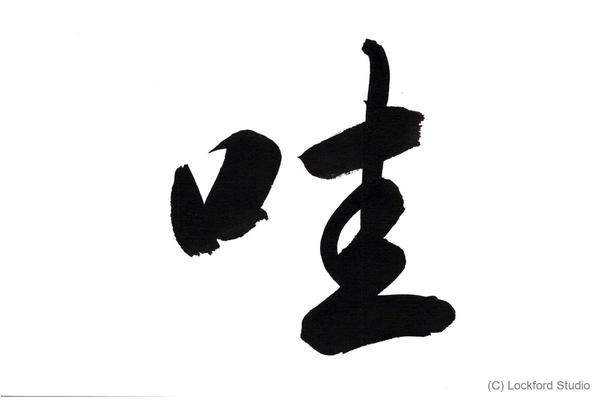 哇
(C) Lockford Studio